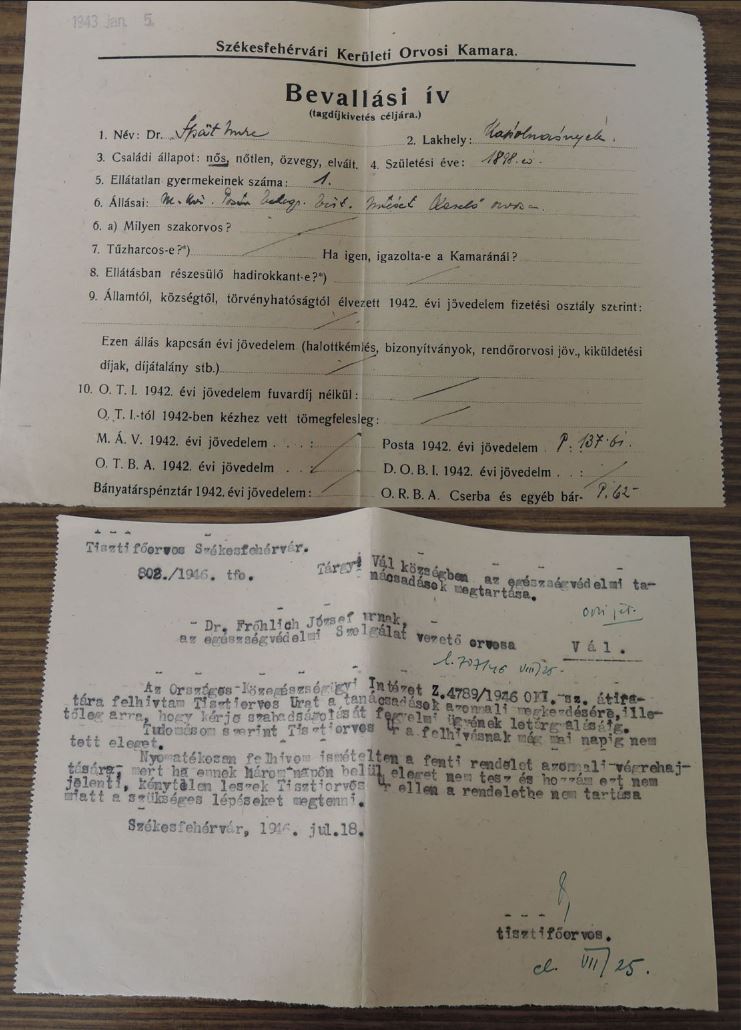 1943 Jan. 5.
Székesfehérvári Kerületi Orvosi Kamara.
Bevallási ív
(tagdíjkivetés céljára.)
1. Név: Dr. Spät Imre 2. Lakhely: Kápolnásnyék.
3. Családi állapot: nős, nőtlen, özvegy, elvált. 4. Születési éve: 1898.
5. Ellátatlan gyermekeinek száma: 1.
6. Állásai: M. kir. Posta
6. a) Milyen szakorvos?
7. Tűzharcos-e?*) Ha igen, igazolta-e a Kamaránál?
8. Ellátásban részesülő hadirokkant-e?*)
9. Államtól, községtől, törvényhatóságtól élvezett 1942. évi jövedelem fizetési osztály szerint:
Ezen állás kapcsán évi jövedelem (halottkémlés, bizonyítványok, rendőrorvosi jöv., kiküldetési
díjak, díjátalány stb.)
10. O. T. I. 1942. évi jövedelem fuvardíj nélkül:
O. T. I.-tól 1942-ben kézhez vett tömegfelesleg:
M. Á. V. 1942. évi jövedelem . . . : Posta 1942. évi jövedelem . P. 137·61.
O. T. B. A. 1942. évi jövedelm . . . : D. O. B. I. 1942. évi jövedelem . . :
Bányatárspénztár 1942. évi jövedelem: O. R. B. A. Cserba és egyéb bár- P. 62-
Tisztifőorvos Székesfehérvár.
802./1946. tfo.
Tárgy: Vál községben az egészségvédelmi ta-
nácsadások megtartása.
Dr. Fröhlich József urnak,
az egészségvédelmi Szolgálat vezető orvosa
V á l .
l. 707/46 VIII/25
Az Országos Közegészségügyi Intézet Z.4789/1946 OKI. sz. átira-
tára felhivtam Tisztiorvos Urat a tanácsadások azonnali megkezdésére, ille-
tőleg arra, hogy kérje szabadságolását fegyelmi ügyének letárgyalásáig.
Tudomásom szerint Tisztiorvos Ur a felhivásnak még mai napig nem
tett eleget.
Nyomatékozan felhivom ismételten a fenti rendelet azonnali végrehaj-
tására, mert ha ennek három napon belül eleget nem tesz és hozzám ezt nem
jelenti, kénytelen leszek Tisztiorvos Ur ellen a rendeletbe nem tartása
miatt a szükséges lépéseket megtenni.
Székesfehérvár, 1946. jul.18.
tisztifőorvos.
VII/25.